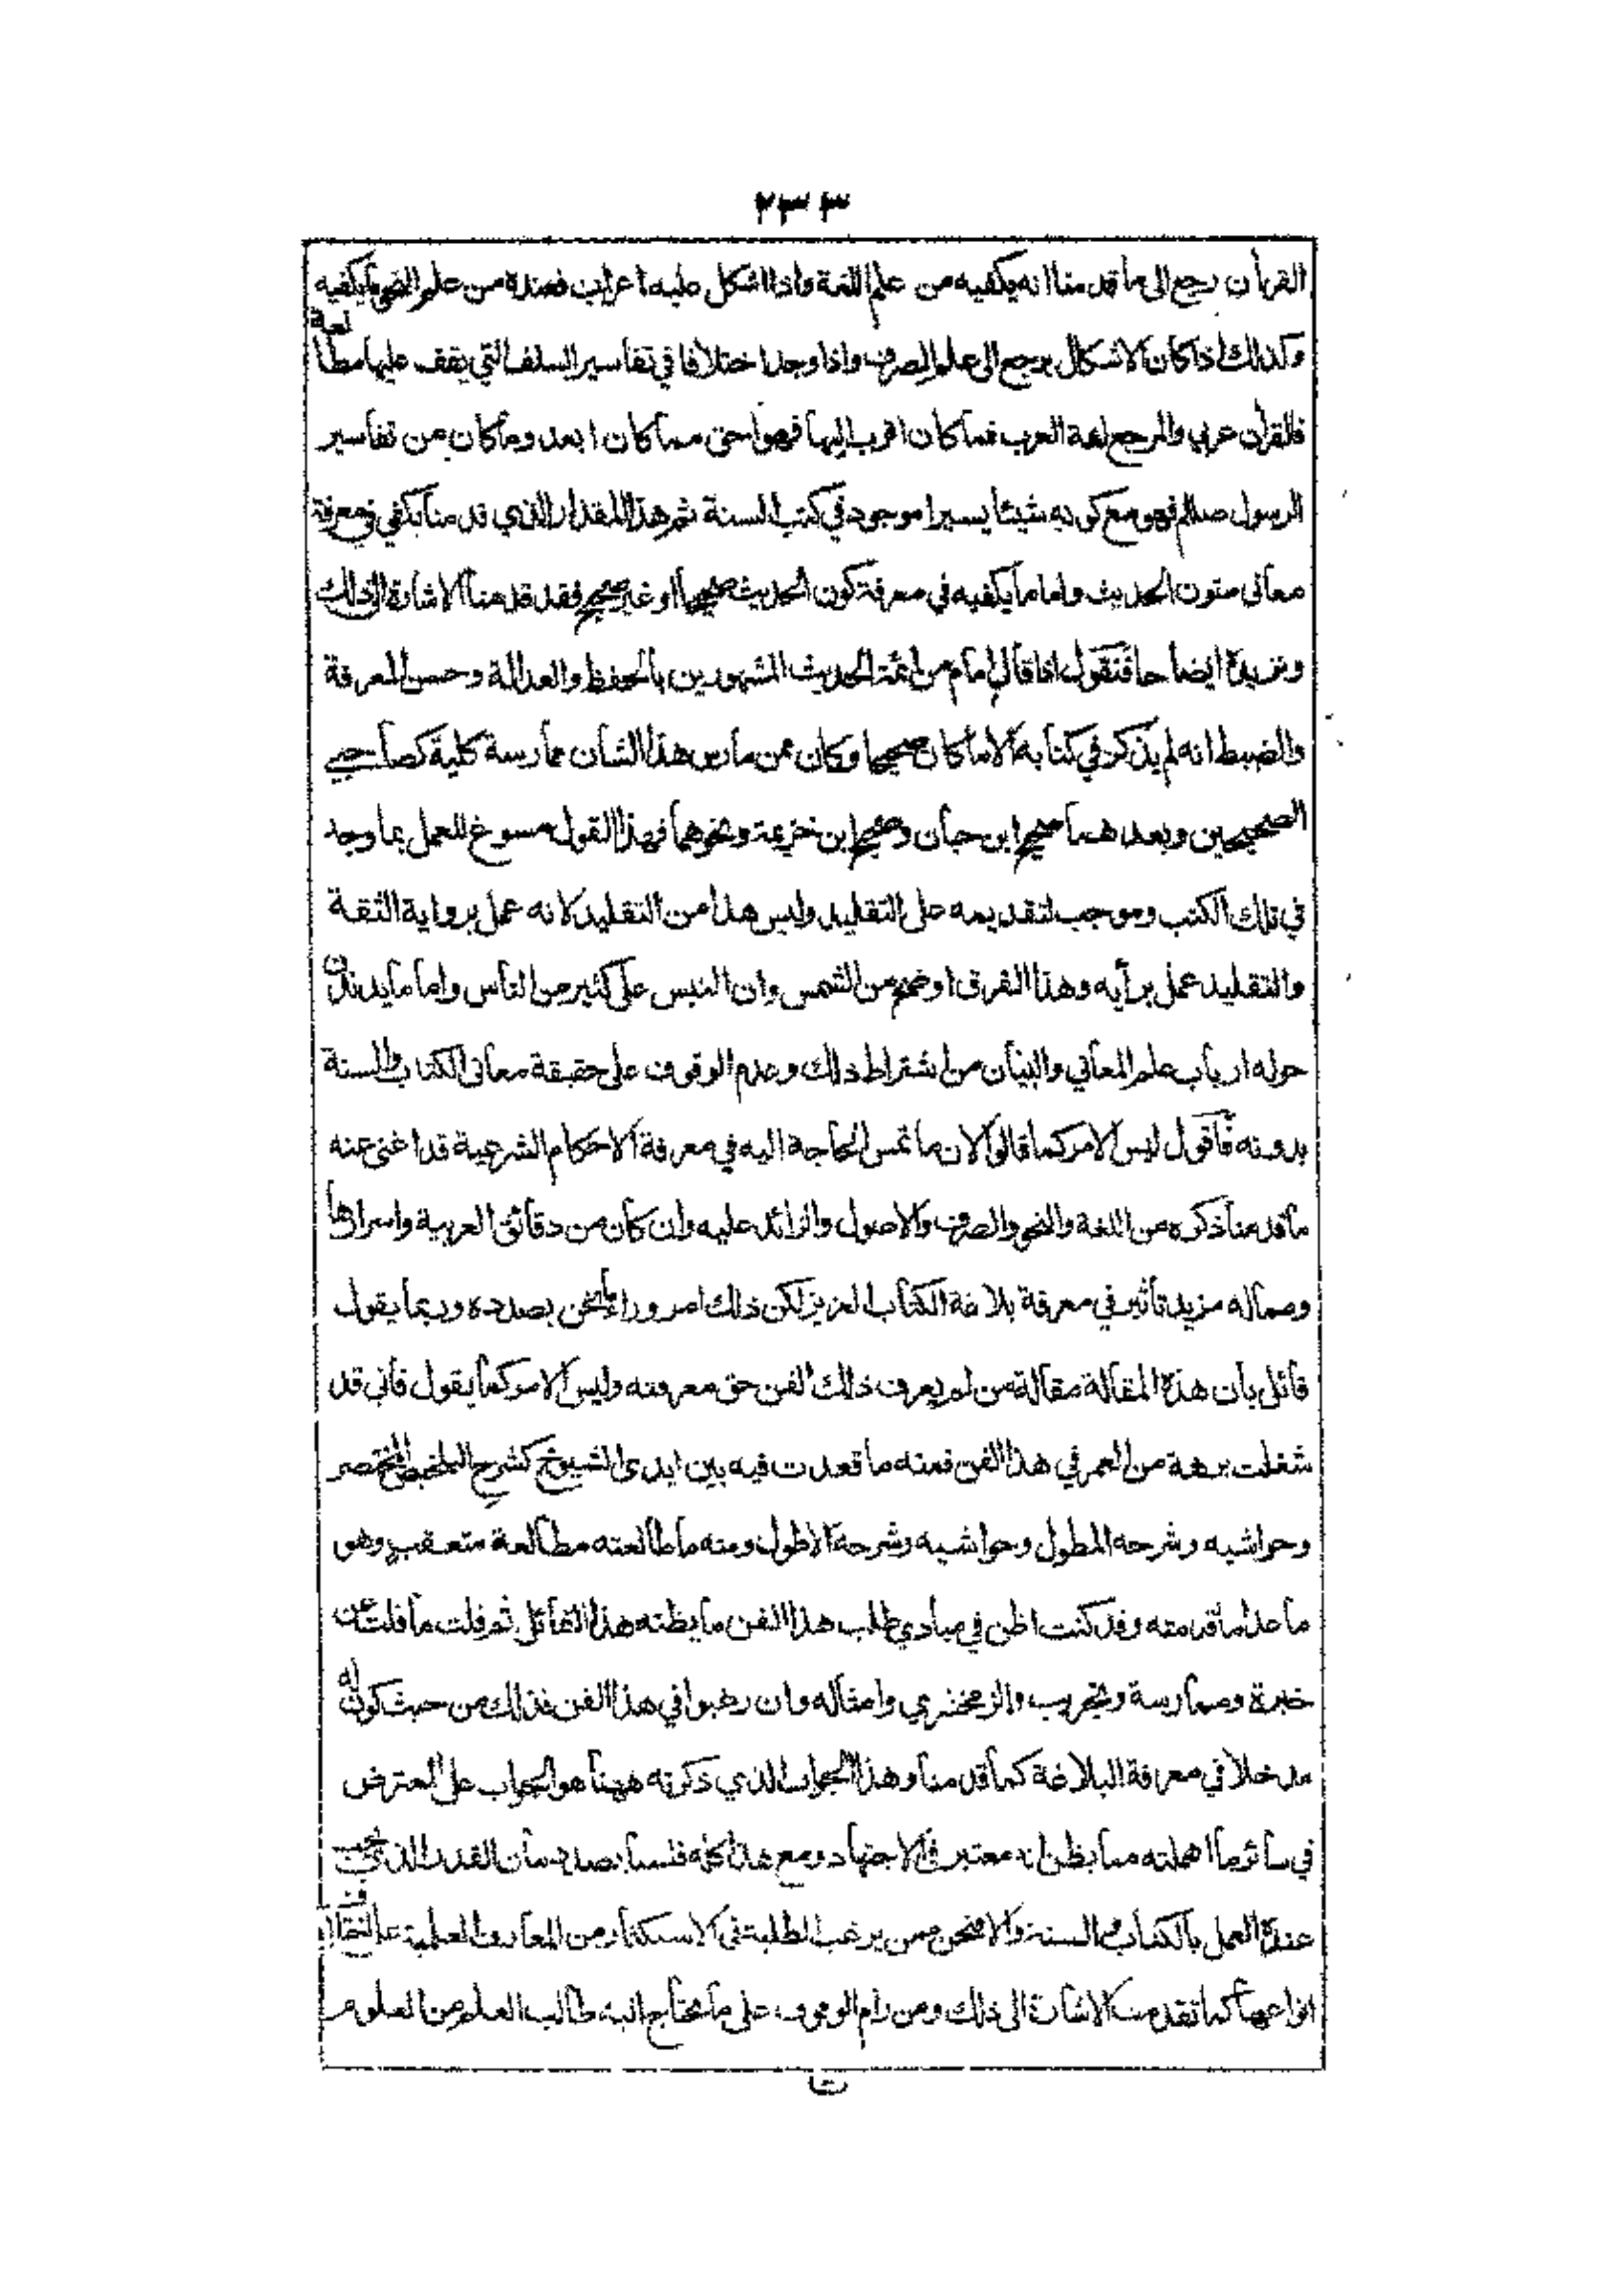 ٢٣٣
القرأن رجع الى ما قدمنا انه يكفيه من علم اللغة واذا اشكل عليه اعراب فعنده من علم النحو ما يكفيه
وكذلك اذا كان الاشكال يرجع الى علم الصرف واذا وجد اختلافا في تفاسير السلف التي يقف عليها مطالعة
فالقرأن عربي والمرجع لغة العرب فما كان اقرب اليها فهو احق مما كان ابعد وما كان من تفاسير
الرسول صللم فهو مع كونه شيئا يسيرا موجود في كتب السنة ثم هذا المقدار الذي قدمنا يكفي في معرفة
معاني متون الحديث واما ما يكفيه في معرفة كون الحديث صحيحا او غير صحيح فقد قدمنا الاشارة الى ذلك
ونزيده ايضاحا فنقول اذا قال امام من ائمة الحديث المشهورين بالحفظ والعدالة وحسن المعرفة
والضبط انه لم يذكر في كتابه الا ما كان صحيحا وكان ممن مارس هذا الشان ممارسة كلية كصاحبي
الصحيحين وبعدهما صحيح ابن حبان وصحيح ابن خزيمة ونحوهما فهذا القول مسوغ للعمل بما وجد
في تلك الكتب وموجب لتقديمه على التقليد وليس هذا من التقليد لانه عمل برواية الثقة
والتقليد عمل برأيه وهذا الفرق اوضح من الشمس وان التبس على كثير من الناس واما ما يدندن
حوله ارباب علم المعاني والبيان من اشتراط ذلك وعدم الوقوف على حقيقة معاني الكتاب والسنة
بدونه فاقول ليس الامر كما قالوا لان ما تمس الحاجة اليه في معرفة الاحكام الشرعية قد اغنى عنه
ما قدمنا ذكره من اللغة والنحو والصرف والاصول والزائد عليه وان كان من دقائق العربية واسرارها
ومما له مزيد تأثير في معرفة بلاغة الكتاب العزيز لكن ذلك امر وراء ما نحن بصدده وربما يقول
قائل بان هذه المقالة مقالة من لم يعرف ذلك الفن حق معرفته وليس الامر كما يقول فاني قد
شغلت برهة من العمر في هذا الفن فمنه ما قعدت فيه بين ايدى الشيوخ كشرح التلخيص المختصر
وحواشيه وشرحه المطول وحواشيه وشرحه الاطول ومنه ما طالعته مطالعة متعقب وهو
ما عدا ما قدمته وقد كنت اظن في مبادي طلب هذا الفن ما يظنه هذا القائل ثم قلت ما قلت عن
خبرة وممارسة وتجريب والزمخشري وامثاله وان رغبوا في هذا الفن فذلك من حيث كونه له
مدخلا في معرفة البلاغة كما قدمنا وهذا الجواب الذي ذكرته ههنا هو الجواب على المعترض
في سائر ما اهملته مما يظن انه معتبر في الاجتهاد ومع هذا كله فلسنا بصدد بيان القدر الذي يجب
عنده العمل بالكتاب والسنة والا فنحن ممن يرغب الطلبة في الاستكثار من المعارف العلمية على اختلاف
انواعها كما تقدمت الاشارة الى ذلك ومن رام الوقوف على ما يحتاج اليه طالب العلم من العلوم
ت